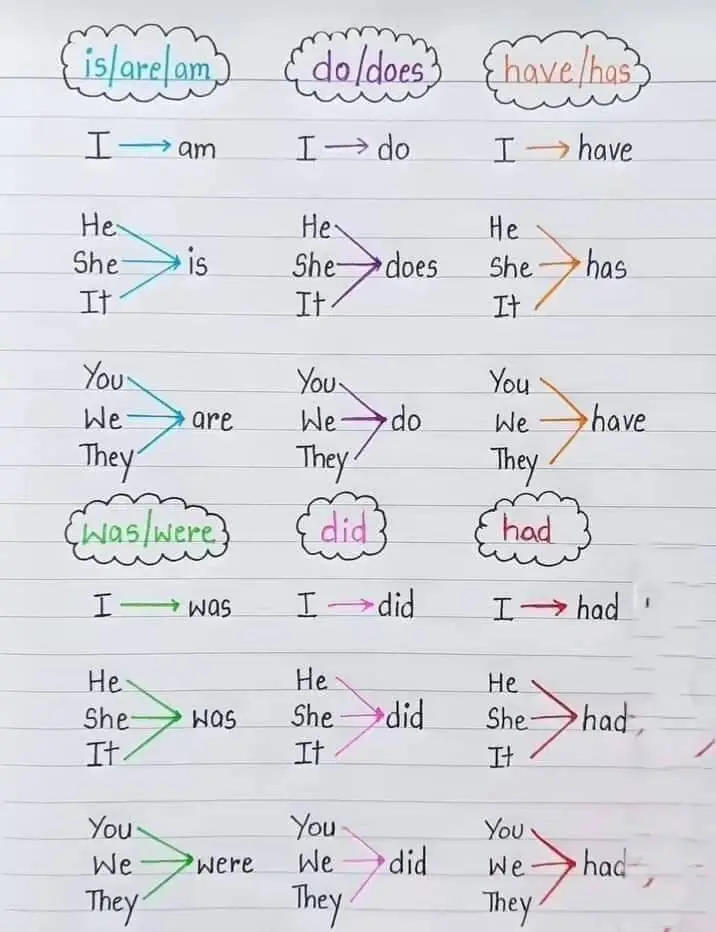 is/are/am do/does have/has
I → am I → do I → have
He He He
She is She does She has
It It It
You You You
We are We do We have
They They They
was/were did had
I → was I → did I → had
He He He
She was She did She had
It It It
You You You
We were We did We had
They They They